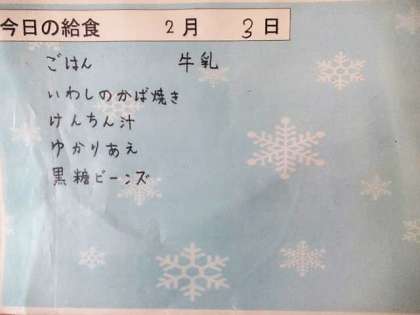 今日の給食 2月 3日
ごはん 牛乳
いわしのかば焼き
けんちん汁
ゆかりあえ
黒糖ビーンズ